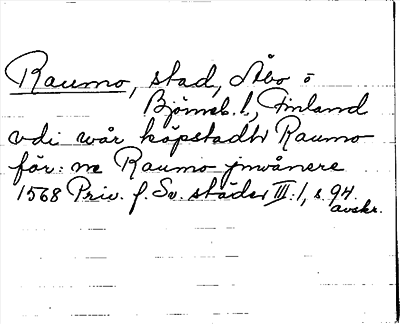 Raumo, stad, Åbo o
Björneb. l., Finland
vdi wår köpstadt Raumo
för: ne Raumo jnwånere
1568 Priv. f. Sv. städer III:1, s. 94
avskr.